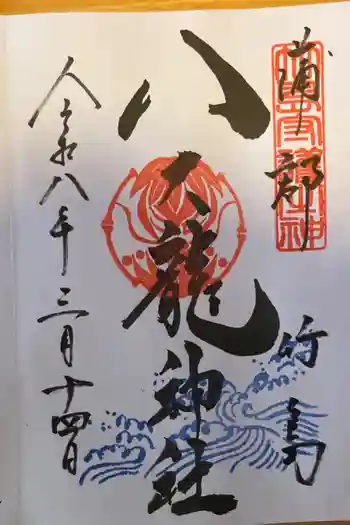 蒲郡
竹島
八大龍神社
令和八年三月十四日